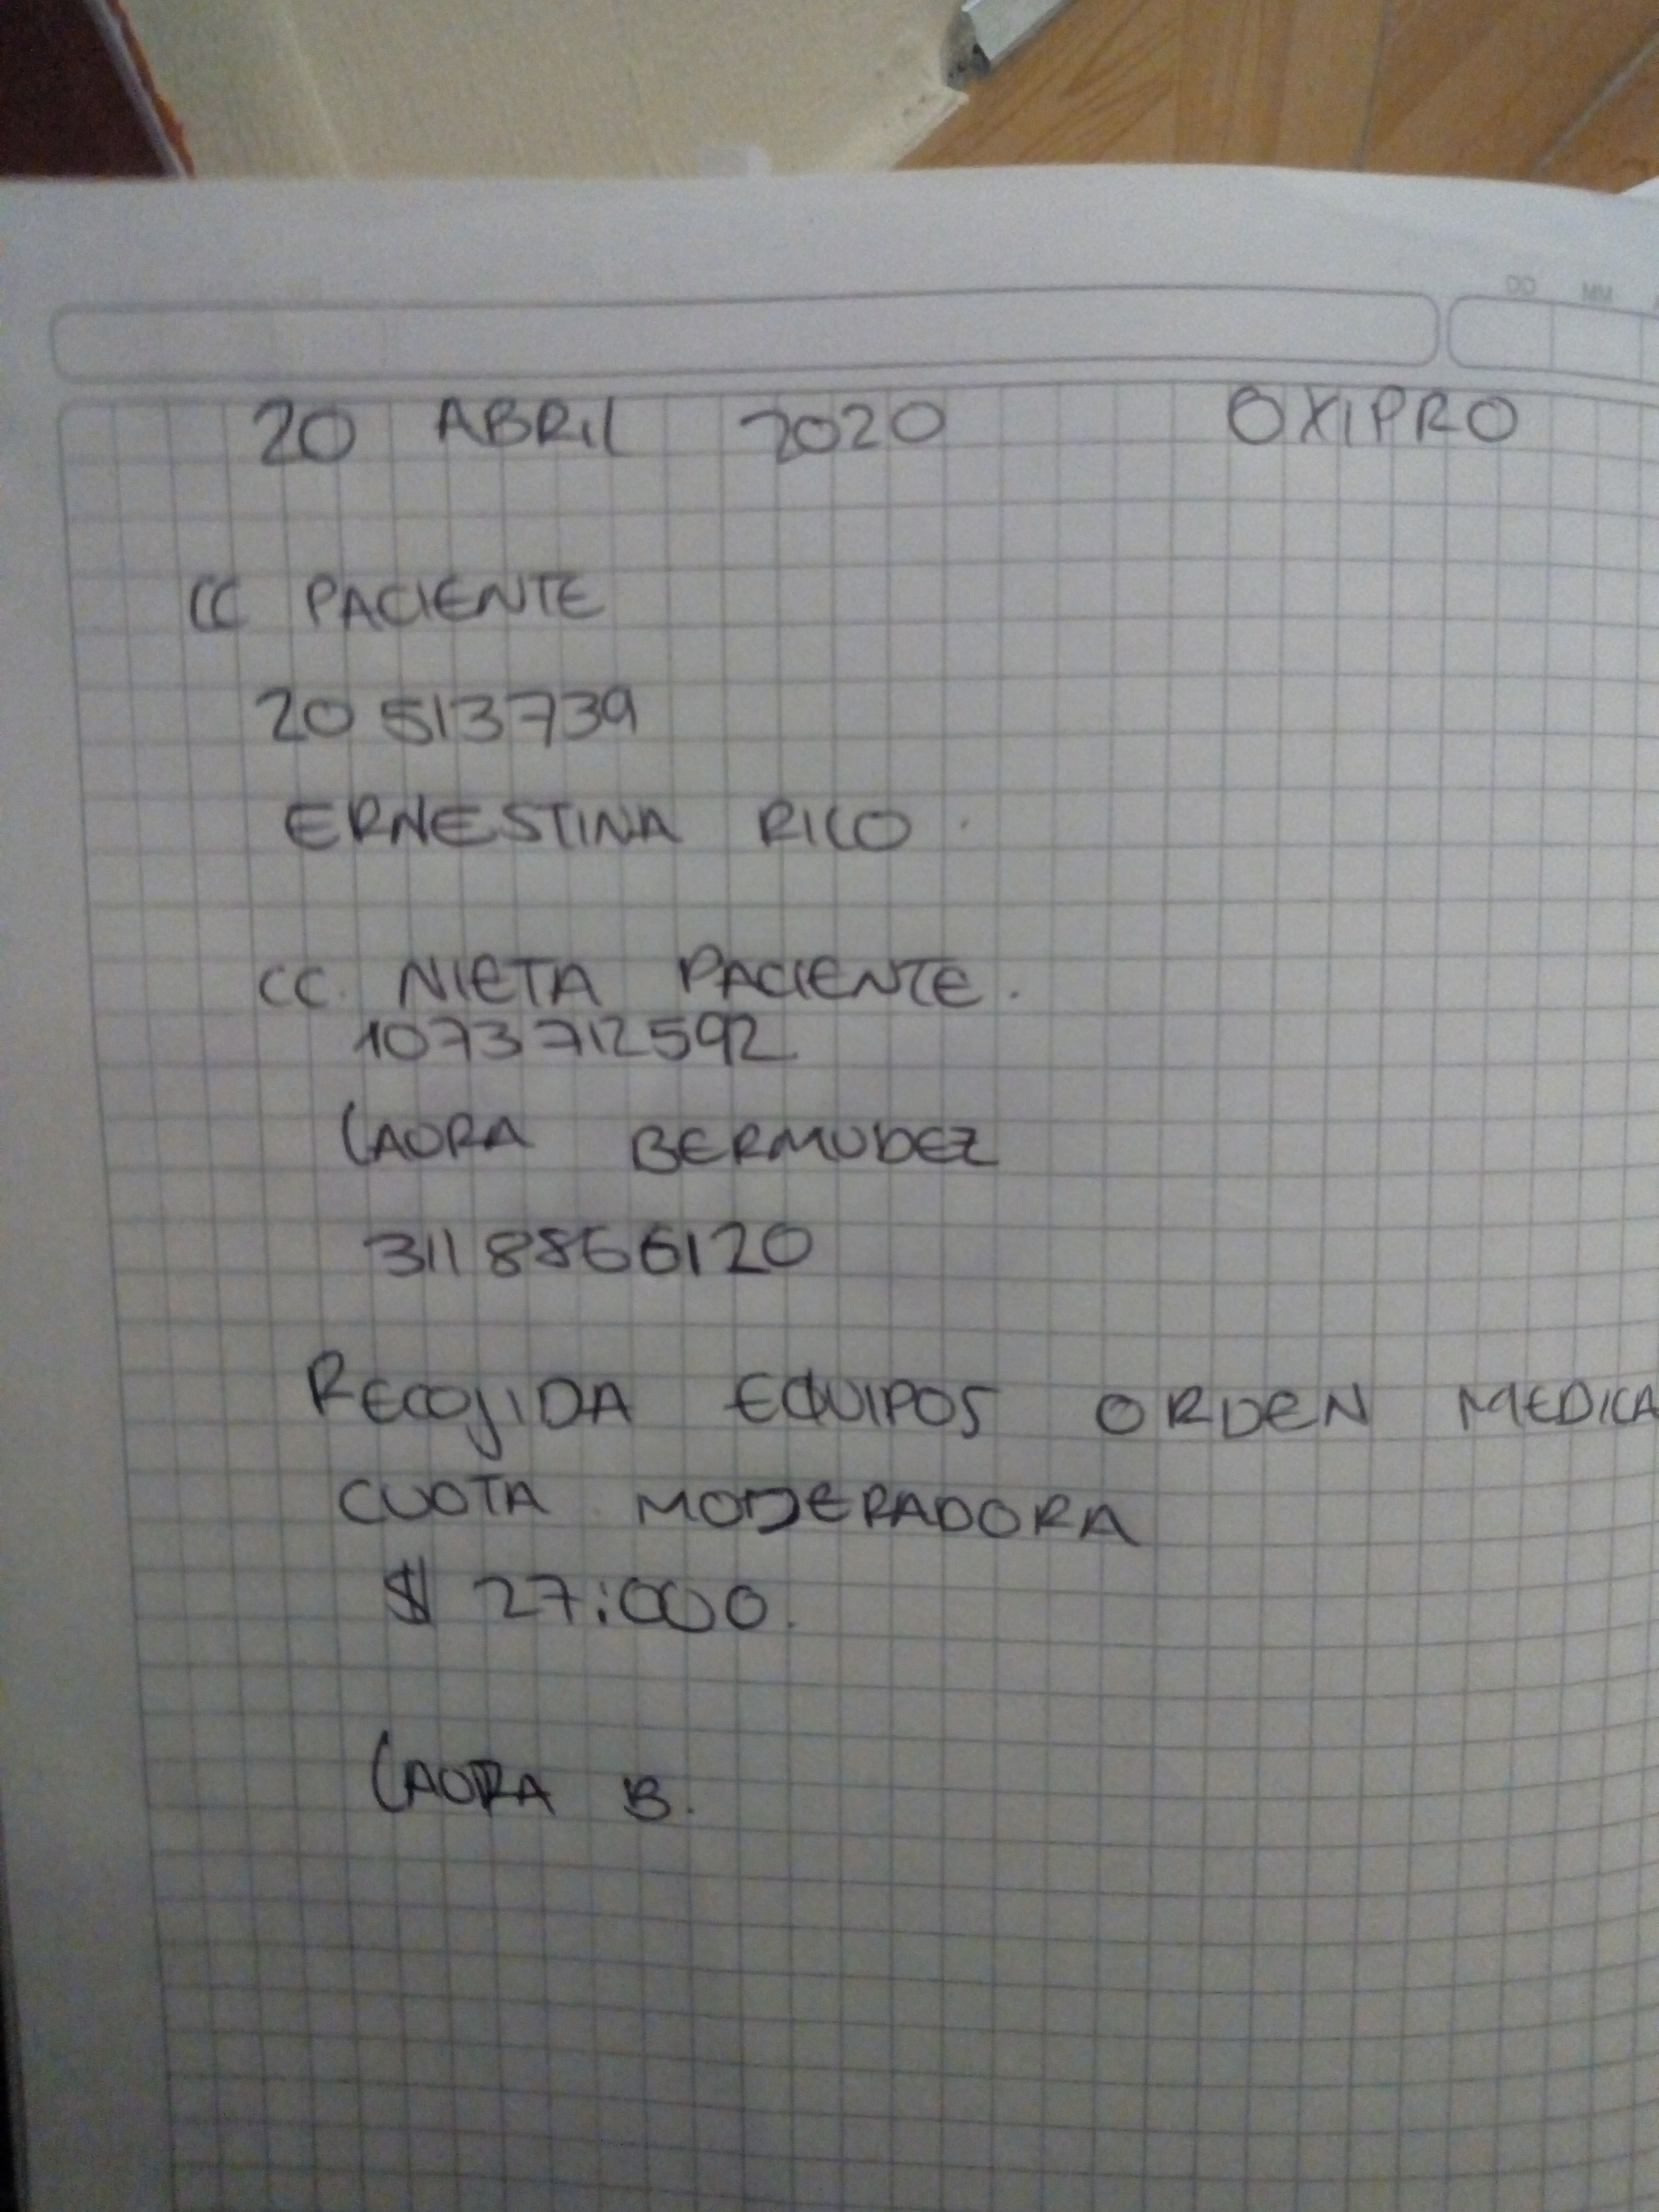 DD MM
20 ABRIL 2020 OXIPRO
CC PACIENTE
20 513739
ERNESTINA RICO.
CC. NIETA PACIENTE.
1073712592
LAURA BERMUDEZ
3118866120
RECOJIDA EQUIPOS ORDEN MEDICA
CUOTA MODERADORA
$ 27:000.
LAURA B.